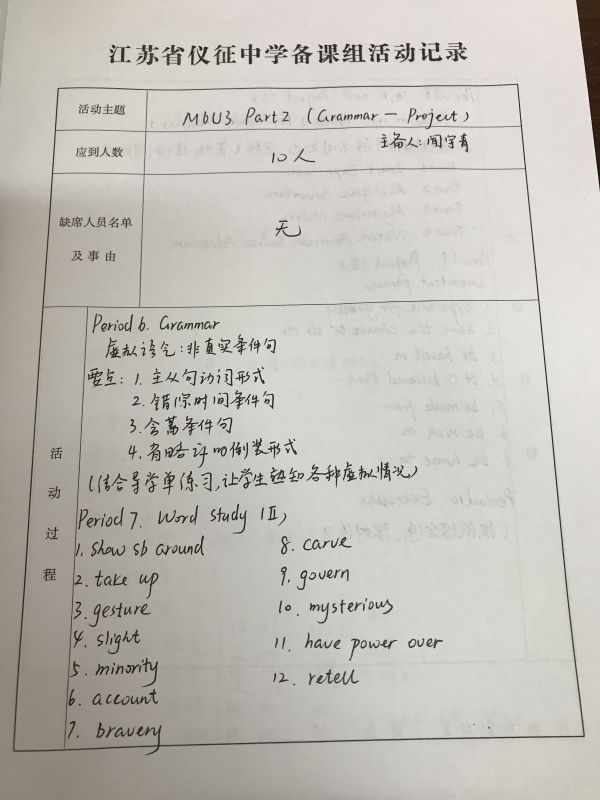 江苏省仪征中学备课组活动记录
活动主题
M6U3 Part2 (Grammar — Project)
应到人数
10人
主备人:闻宇青
缺席人员名单
及事由
无
活动过程
Period 6. Grammar
虚拟语气:非真实条件句
要点:1. 主从句动词形式
2. 错综时间条件句
3. 含蓄条件句
4. 省略if的倒装形式
(结合导学单练习,让学生熟知各种虚拟情况)
Period 7. Word study (II)
1. show sb around
2. take up
3. gesture
4. slight
5. minority
6. account
7. bravery
8. carve
9. govern
10. mysterious
11. have power over
12. retell